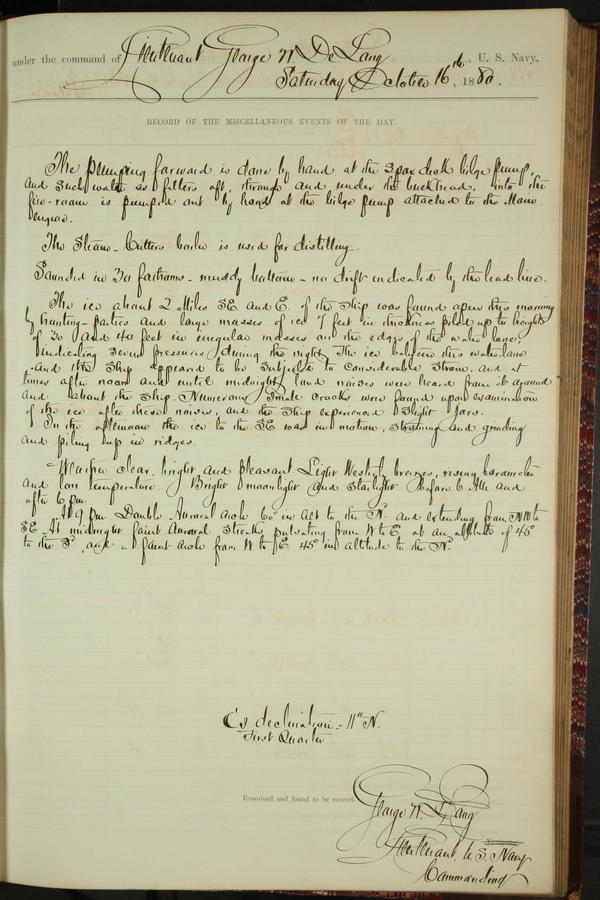 under the command of Lieutenant George W. De Long, U. S. Navy,
Saturday October 16th, 1880.
RECORD OF THE MISCELLANEOUS EVENTS OF THE DAY.
The pumping forward is done by hand at the spar deck bilge pump,
and such water as filters aft, through and under the bulkhead, into the
fire-room is pumped out by hand at the bilge pump attached to the Main
engine.
The Steam-Cutters boiler is used for distilling.
Sounded in 30 fathoms - muddy bottom - no drift indicated by the lead line.
The ice about 2 Miles SE and E. of the Ship was found open this morning
by hunting-parties and large masses of ice 7 feet in thickness piled up to heights
of 30 and 40 feet in irregular masses on the edges of the water lane,
indicating severe pressures during the night. The ice between this water lane
and the Ship appeared to be subject to considerable strain, and at
times after noon and until midnight, loud noises were heard from it around
and about the Ship. Numerous small cracks were found upon examination
of the ice after these noises, and the Ship experienced slight jars.
In the afternoon the ice to the SE was in motion, straining and grinding
and piling up in ridges.
Weather clear, bright and pleasant. Light Westerly breezes, rising barometer
and low temperature. Bright moonlight and starlight before 6 AM and
after 6 pm.
At 9 pm Double Auroral arch 60° in alt to the N. and extending from NW to
SE. At midnight faint Auroral streaks pulsating from W to E, at an altitude of 45°
to the S, and a faint arch from W to E 45° in altitude to the N.
C's declination - 11° N.
First Quarter
Examined and found to be correct.
George W. De Long
Lieutenant U. S. Navy
Commanding